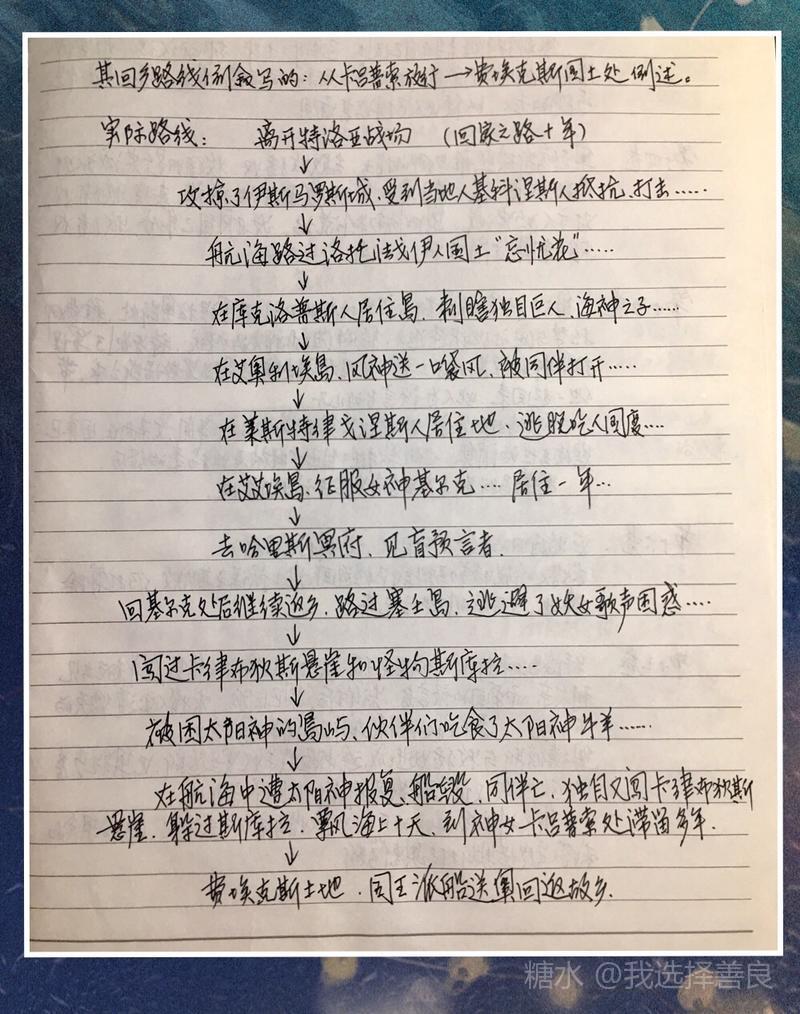 其回乡路线倒叙写的：从卡吕普索放行→费埃克斯国土处倒述。
实际路线： 离开特洛亚战场 （回家之路十年）
↓
攻掠了伊斯马罗斯城、受到当地人基科涅斯人抵抗、打击……
↓
航海路过洛托法戈伊人国土“忘忧花”……
↓
在库克洛普斯人居住岛、刺瞎独目巨人、海神之子……
↓
在艾奥利埃岛、风神送一口袋风、被同伴打开……
↓
在莱斯特律戈涅斯人居住地、逃脱吃人国度……
↓
在艾艾埃岛、征服女神基尔克…… 居住一年…
↓
去哈里斯冥府、见盲预言者.
↓
回基尔克处后继续返乡、路过塞壬岛、逃避了妖女歌声困惑……
↓
闯过卡律布狄斯悬崖和怪物斯库拉……
↓
被困太阳神的岛屿、伙伴们吃食了太阳神牛羊……
↓
在航海中遭太阳神报复、船毁、同伴亡、独自又闯卡律布狄斯
悬崖、躲过斯库拉、飘风海上十天、到神女卡吕普索处滞留多年.
↓
费埃克斯土地、国王派船送奥回返故乡.
糖水 @我选择善良